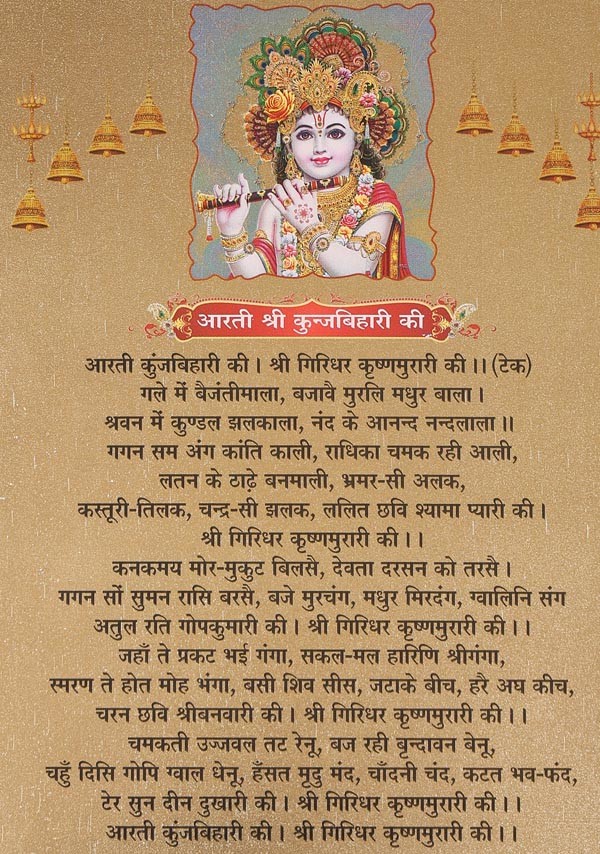 आरती श्री कुन्जबिहारी की
आरती कुंजबिहारी की। श्री गिरिधर कृष्णमुरारी की।।(टेक)
गले में बैजंतीमाला, बजावै मुरलि मधुर बाला।
श्रवन में कुण्डल झलकाला, नंद के आनन्द नन्दलाला॥
गगन सम अंग कांति काली, राधिका चमक रही आली,
लतन के ठाढ़े बनमाली, भ्रमर-सी अलक,
कस्तूरी-तिलक, चन्द्र-सी झलक, ललित छवि श्यामा प्यारी की।
श्री गिरिधर कृष्णमुरारी की।।
कनकमय मोर-मुकुट बिलसै, देवता दरसन को तरसै।
गगन सों सुमन रासि बरसै, बजे मुरचंग, मधुर मिरदंग, ग्वालिनि संग
अतुल रति गोपकुमारी की। श्री गिरिधर कृष्णमुरारी की।।
जहाँ ते प्रकट भई गंगा, सकल-मल हारिणि श्रीगंगा,
स्मरण ते होत मोह भंगा, बसी शिव सीस, जटाके बीच, हरै अघ कीच,
चरन छवि श्रीबनवारी की। श्री गिरिधर कृष्णमुरारी की।।
चमकती उज्जवल तट रेनू, बज रही बृन्दावन बेनू,
चहुँ दिसि गोपि ग्वाल धेनू, हँसत मृदु मंद, चाँदनी चंद, कटत भव-फंद,
टेर सुन दीन दुखारी की। श्री गिरिधर कृष्णमुरारी की।।
आरती कुंजबिहारी की। श्री गिरिधर कृष्णमुरारी की।।